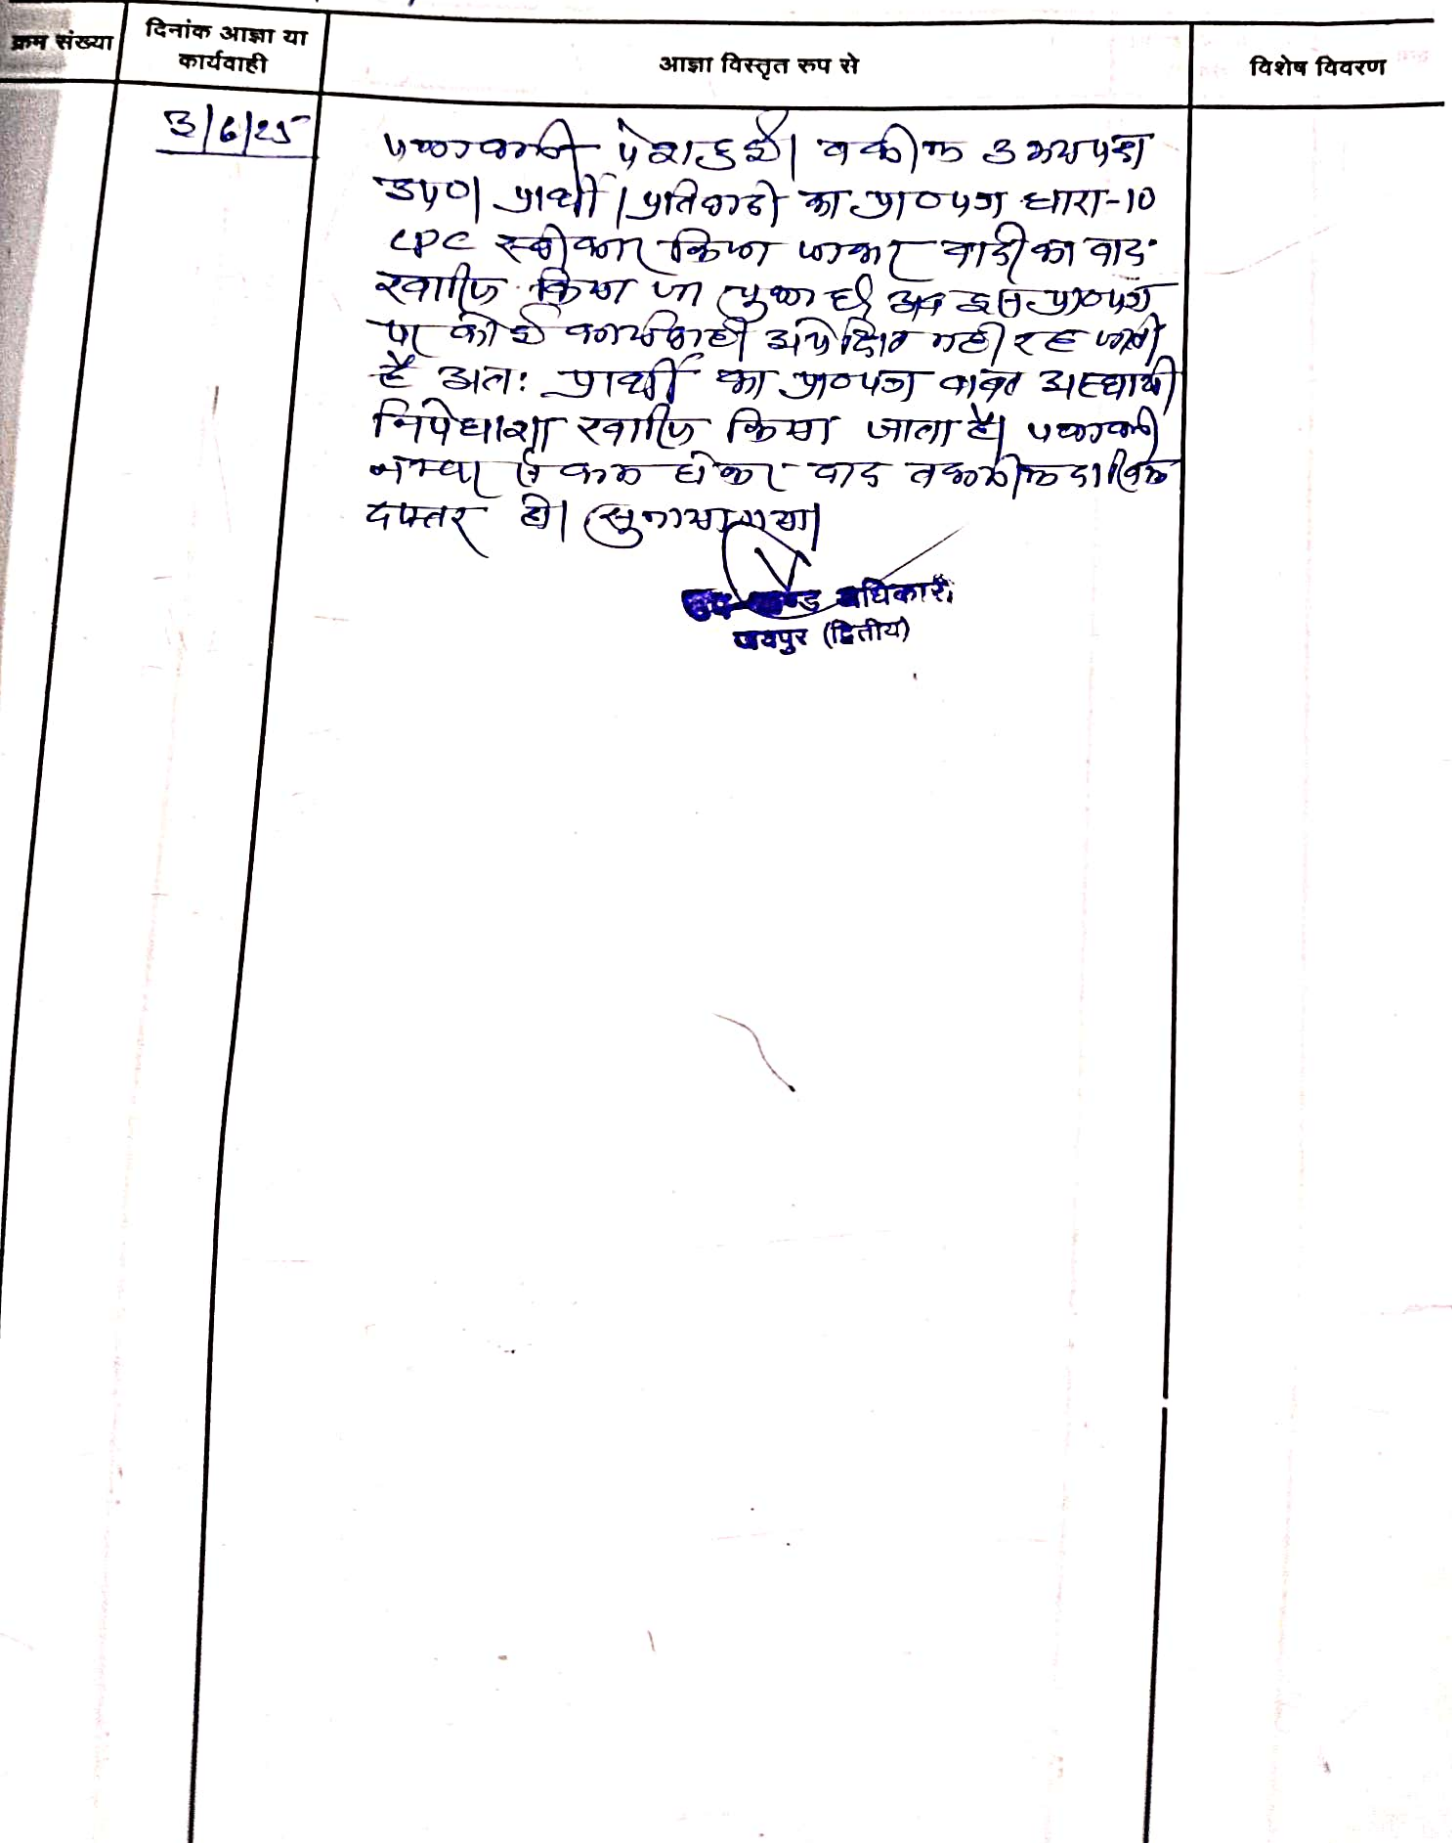 क्रम संख्या
दिनांक आज्ञा या
कार्यवाही
आज्ञा विस्तृत रुप से
विशेष विवरण
3/6/25
पत्रावली पेश हुई। वकील उभयपक्ष
उप०। प्रार्थी/प्रतिवादी का प्रा०पत्र धारा-10
CPC स्वीकार किया जाकर वादी का वाद
खारिज किया जा चुका है, अब इस प्रा०पत्र
पर कोई कार्यवाही अपेक्षित नही रह जाती
है अतः प्रार्थी का प्रा०पत्र बाबत अस्थायी
निषेधाज्ञा खारिज किया जाता है। पत्रावली
नम्बर से कम होकर बाद तकमील दाखिल
दफ्तर हो। सुनाया गया।
उप खण्ड अधिकारी
जयपुर (द्वितीय)